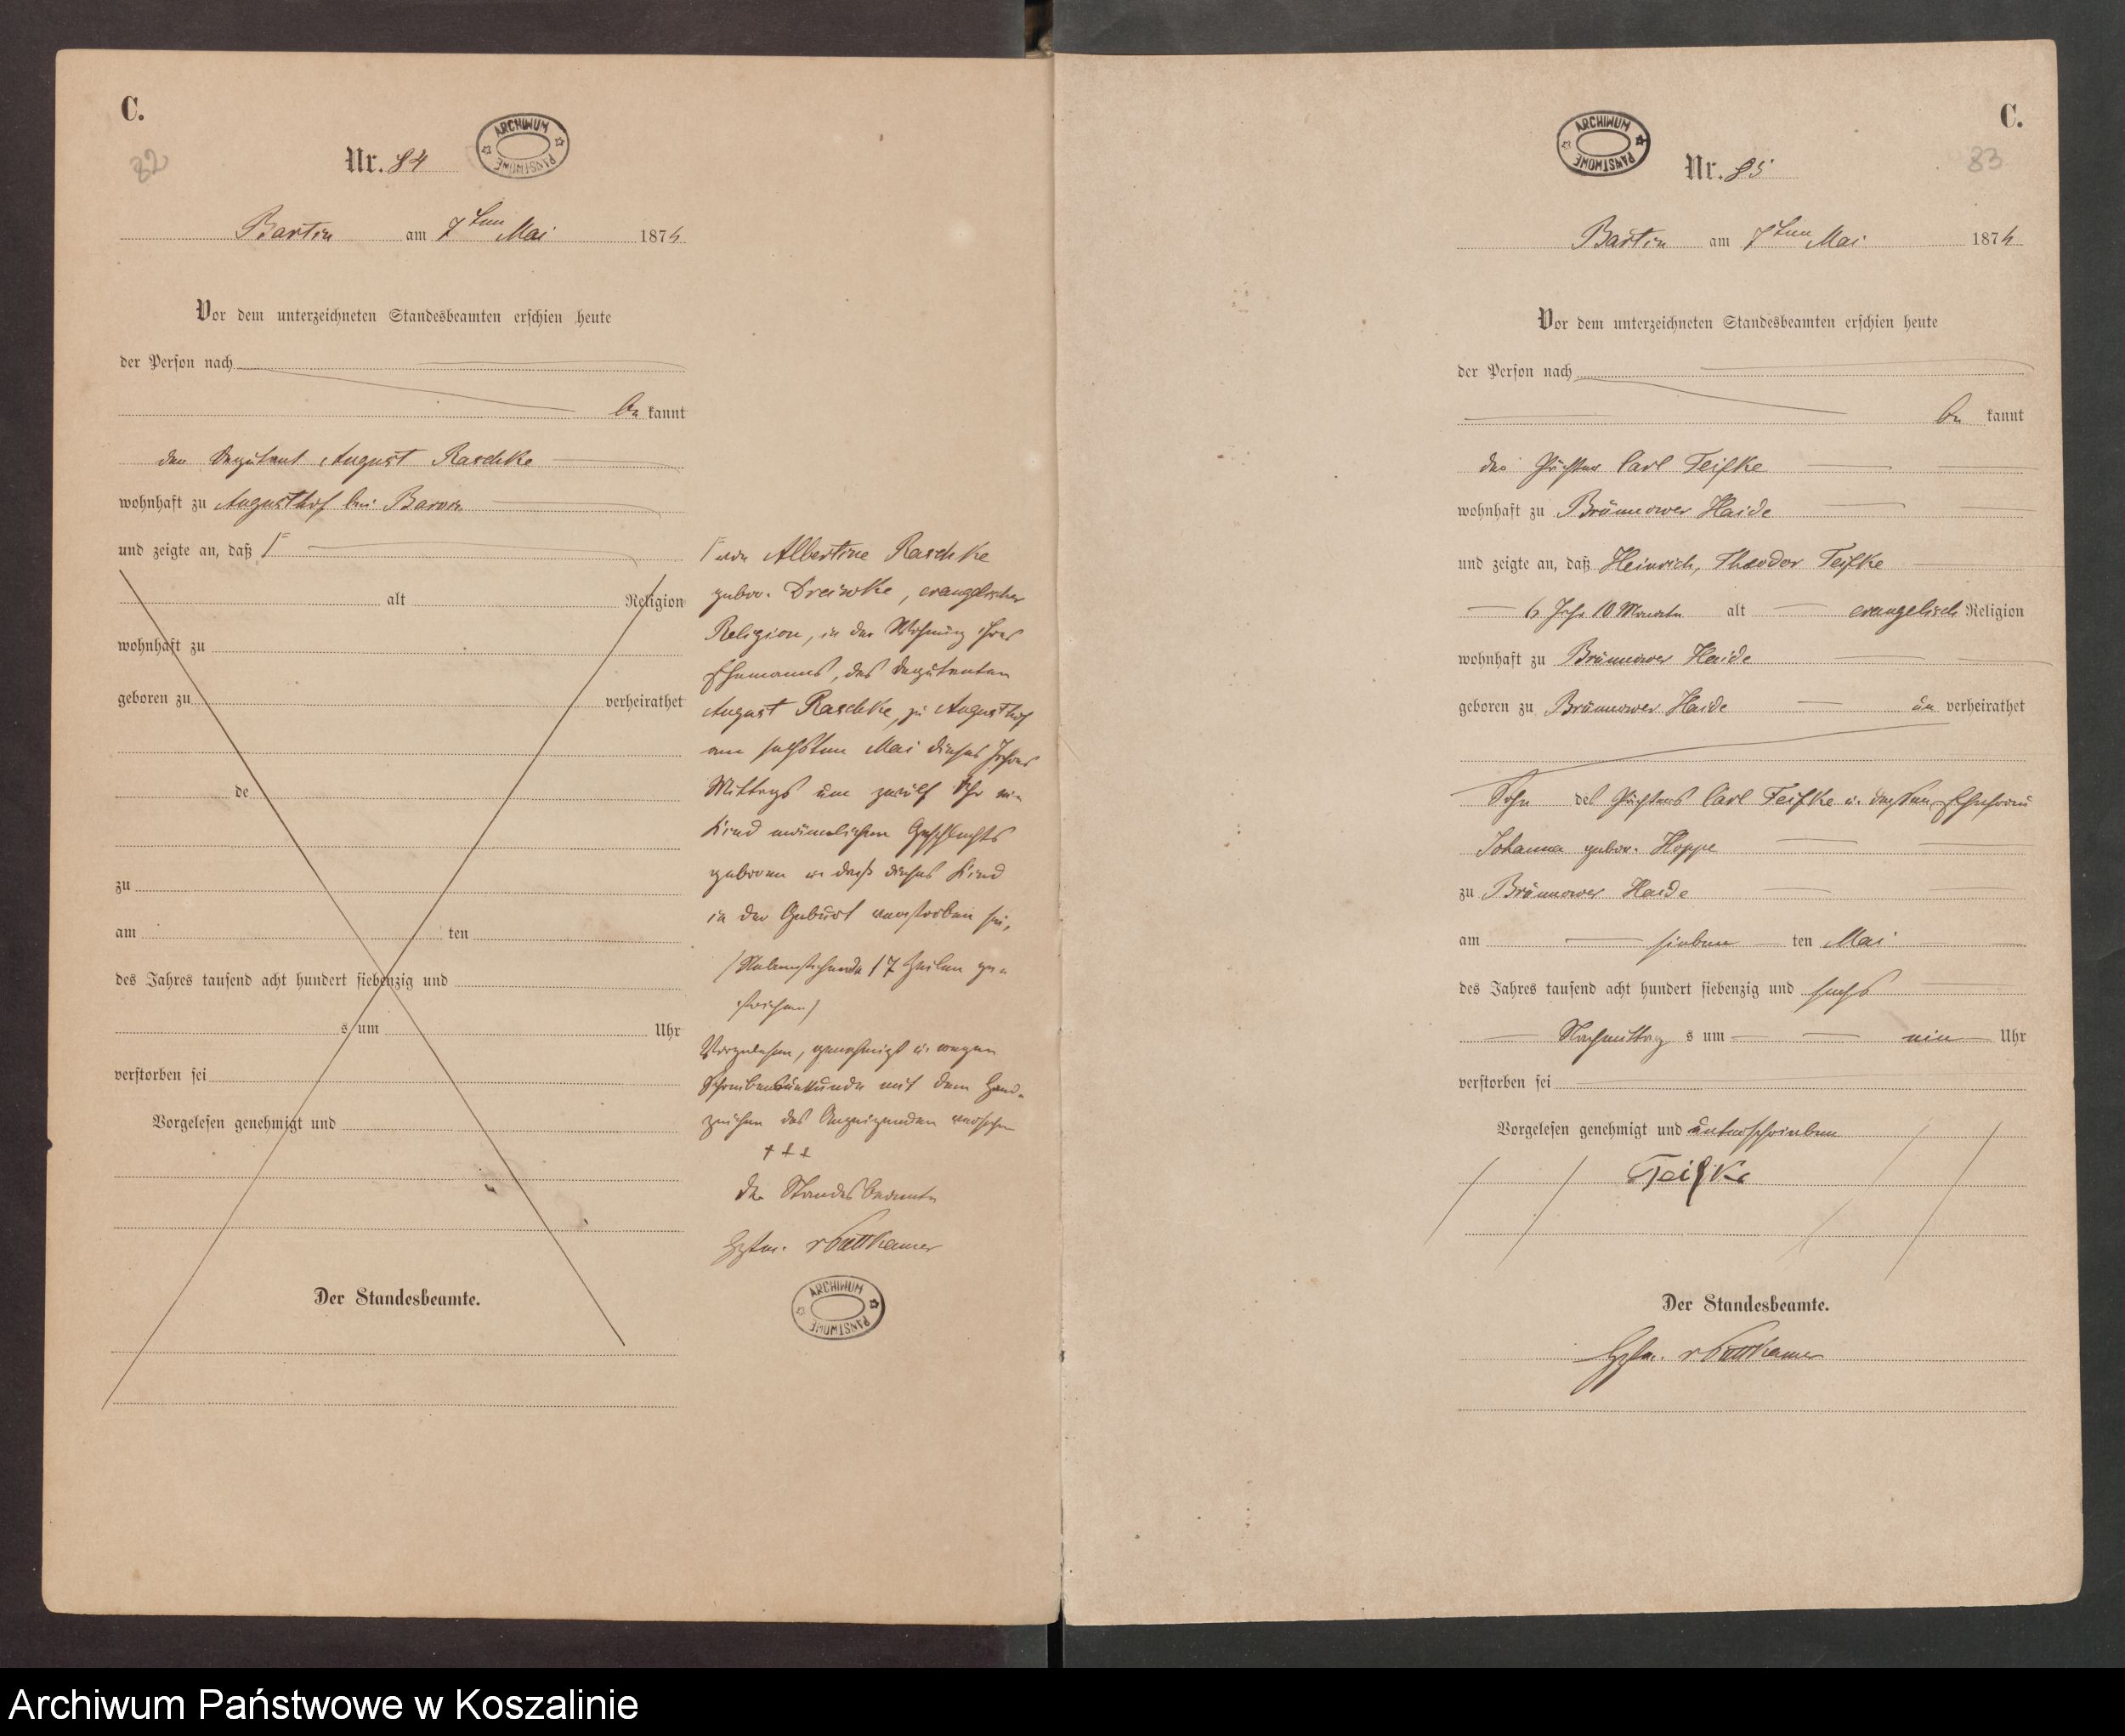 C.
82
Nr. 84
ARCHIWUM PAŃSTWOWE
Bartin am 7ten Mai 1876
Vor dem unterzeichneten Standesbeamten erschien heute
der Person nach
be kannt
der Deputant August Raschke
wohnhaft zu Augusthof bei Barvin
und zeigte an, daß Γ
alt Religion
wohnhaft zu
geboren zu verheirathet
de
zu
am ten
des Jahres tausend acht hundert siebenzig und
s um Uhr
verstorben sei
Vorgelesen genehmigt und
Der Standesbeamte.
Γ von Albertine Raschke
gebor. Dreiwke, evangelischer
Religion, in der Wohnung ihres
Ehemannes, des Deputanten
August Raschke, zu Augusthof
am sechsten Mai dieses Jahres
Mittags um zwölf Uhr ein
Kind männlichen Geschlechts
geboren u. daß dieses Kind
in der Geburt verstorben sei,
(Nebenstehende 17 Zeilen ge-
strichen)
Vorgelesen, genehmigt u. wegen
Schreibensunkunde mit dem Hand-
zeichen des Anzeigenden versehen
+ + +
Der Standesbeamte
Hptm. v Puttkamer
ARCHIWUM PAŃSTWOWE
C.
83
ARCHIWUM PAŃSTWOWE
Nr. 85
Bartin am 7ten Mai 1876
Vor dem unterzeichneten Standesbeamten erschien heute
der Person nach
be kannt
der Pächter Carl Teifke
wohnhaft zu Brünnower Haide
und zeigte an, daß Heinrich, Theodor Teifke
6 Jahr 10 Monate alt evangelisch Religion
wohnhaft zu Brünnower Haide
geboren zu Brünnower Haide un verheirathet
Sohn des Pächters Carl Teifke u. dessen Ehefrau
Johanna gebor. Hoppe
zu Brünnower Haide
am sieben ten Mai
des Jahres tausend acht hundert siebenzig und sechs
Nachmittag s um ein Uhr
verstorben sei
Vorgelesen genehmigt und unterschrieben
Teifke
Der Standesbeamte.
Hptm. v Puttkamer
Archiwum Państwowe w Koszalinie